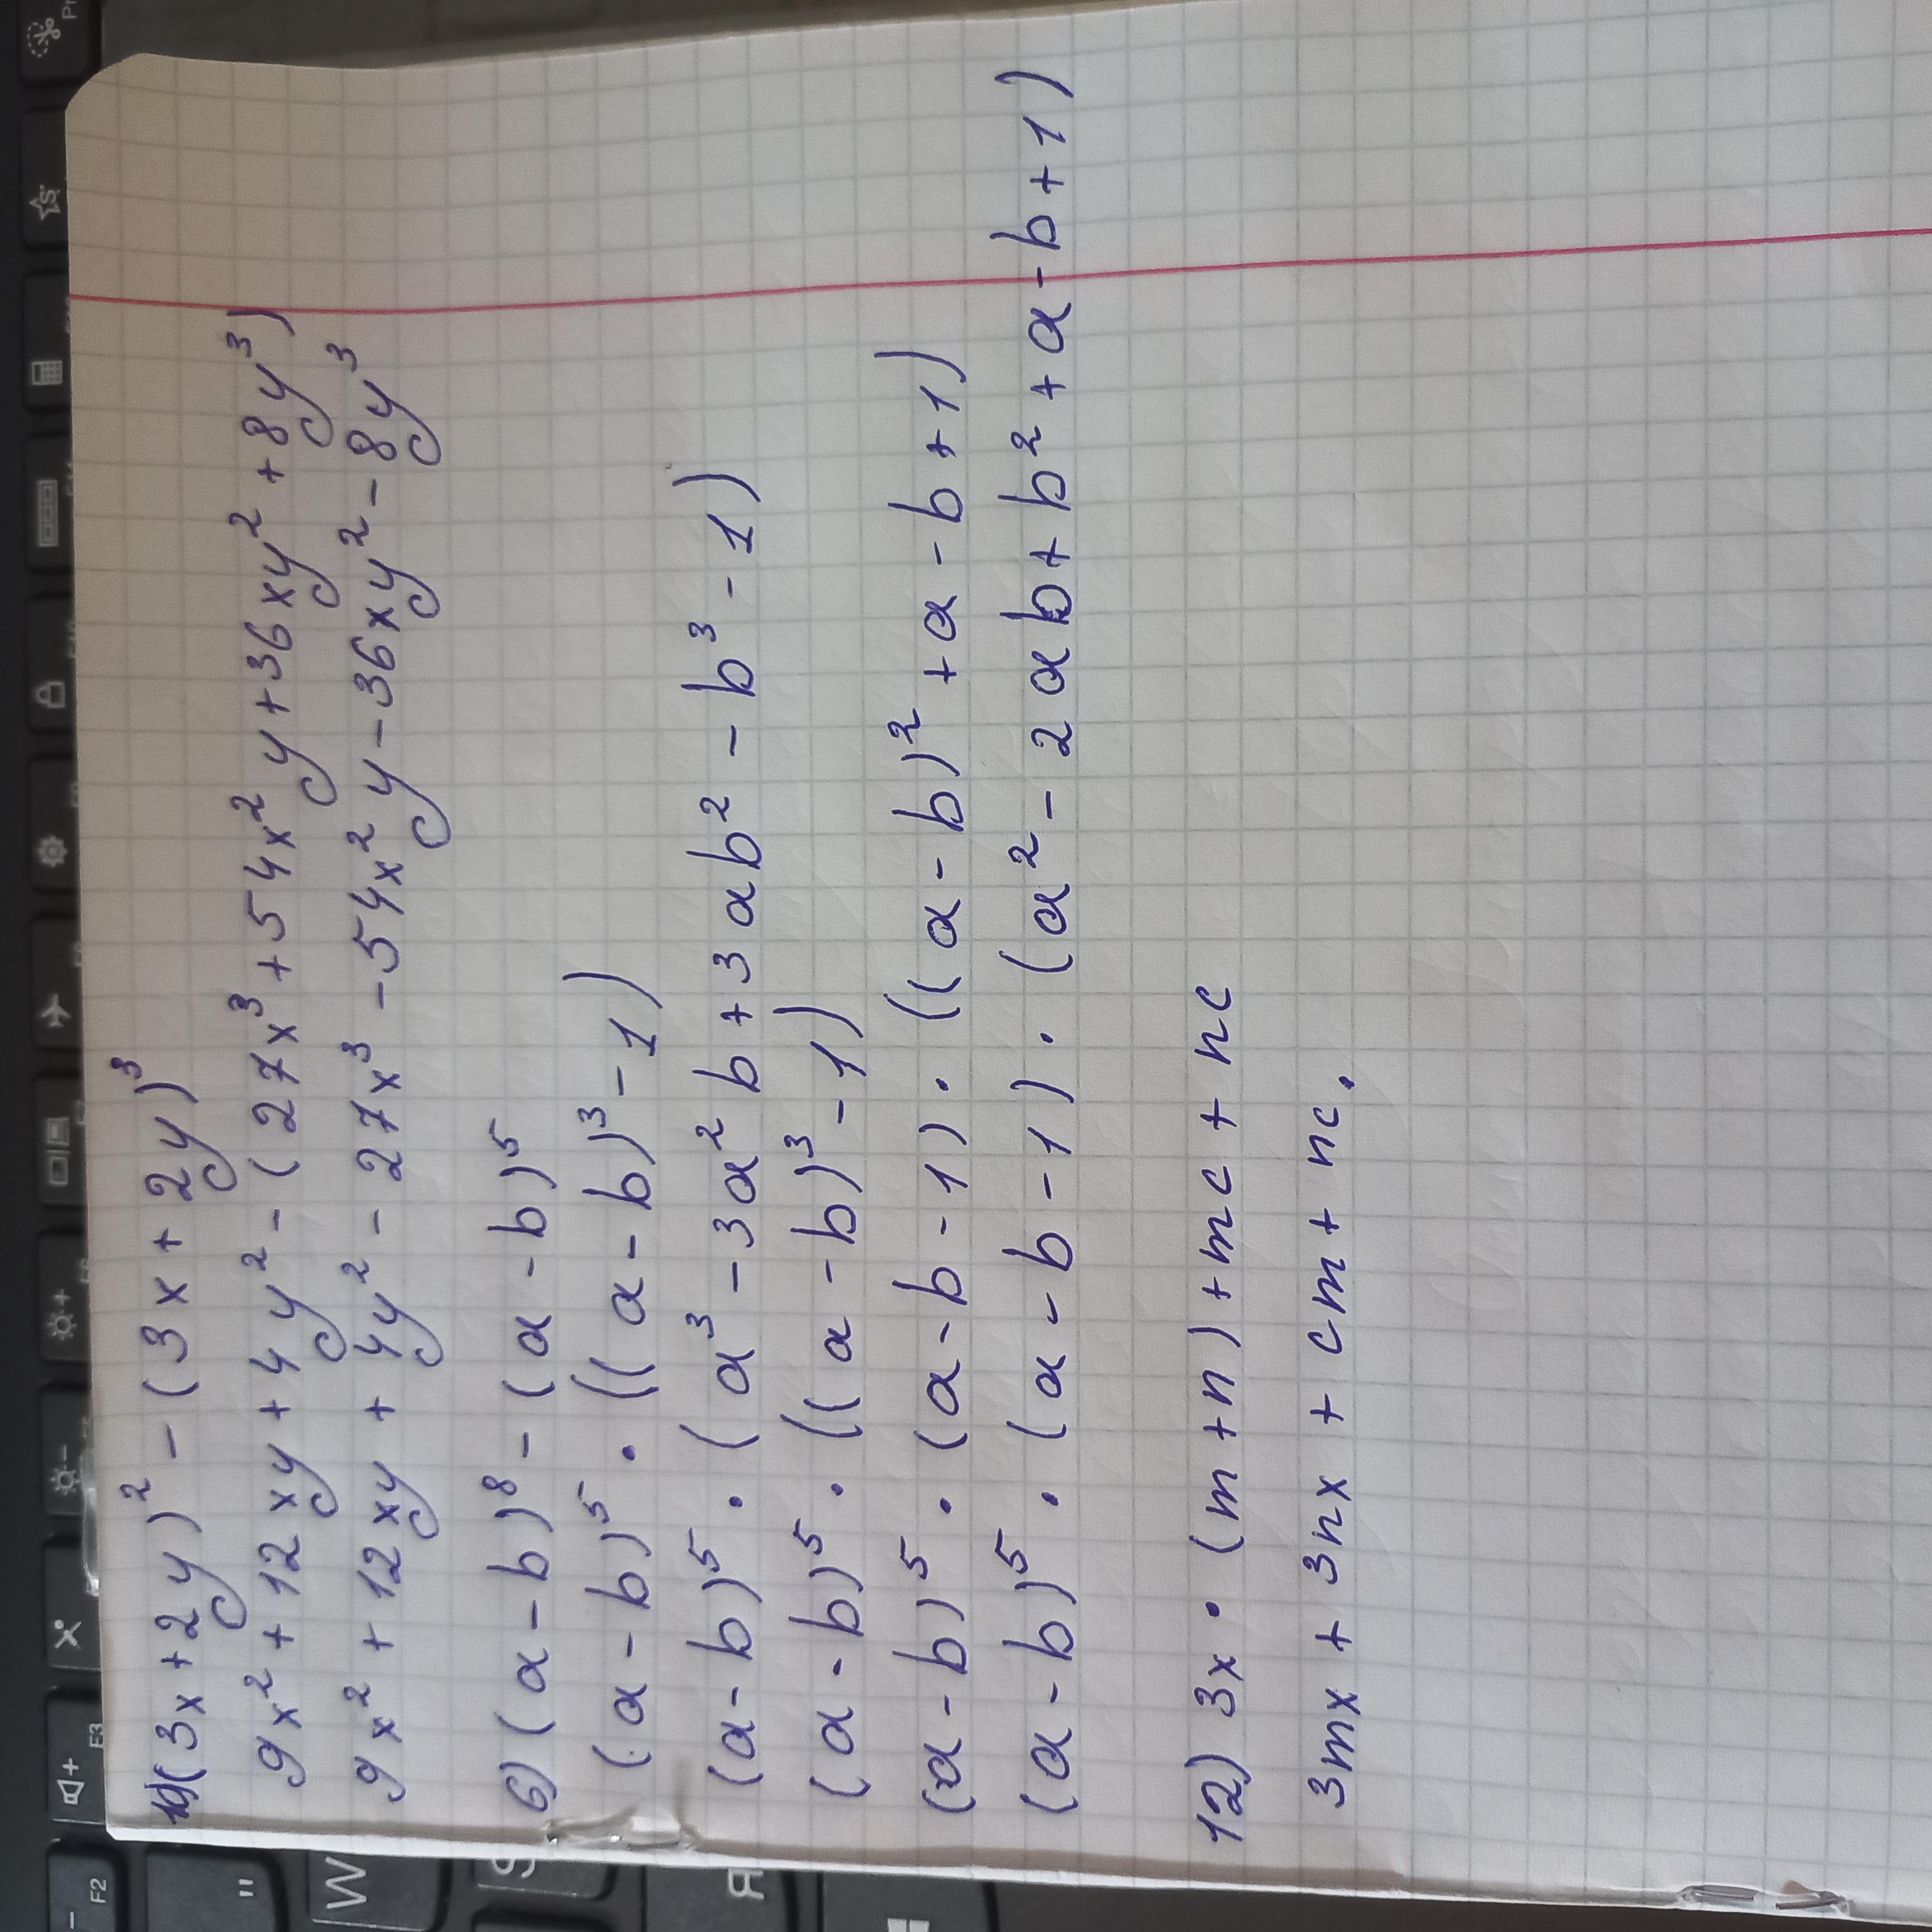 10)(3x+2y)² - (3x+2y)³
9x²+12xy+4y² - (27x³+54x²y+36xy²+8y³)
9x²+12xy+4y² - 27x³ - 54x²y - 36xy² - 8y³
6) (a-b)⁸ - (a-b)⁵
(a-b)⁵ · ((a-b)³ - 1)
(a-b)⁵ · (a³ - 3a²b + 3ab² - b³ - 1)
(a-b)⁵ · ((a-b)³ - 1)
(a-b)⁵ · (a-b-1) · ((a-b)² + a - b + 1)
(a-b)⁵ · (a-b-1) · (a² - 2ab + b² + a - b + 1)
12) 3x · (m+n) + mc + nc
3mx + 3nx + cm + nc.
F2
F3
"
W
Я